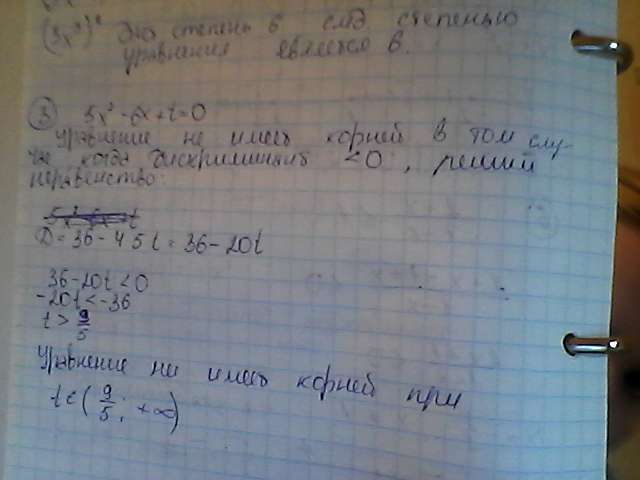 (3x³)² это степень 6 след степенью
уравнения является 6.
③ 5x² - 6x + t = 0
Уравнение не имеет корней в том слу-
чае когда дискриминант < 0, решим
неравенство:
D = 36 - 4 5 t = 36 - 20t
36 - 20t < 0
-20t < -36
t > 9/5
Уравнение не имеет корней при
t ∈ (9/5; +∞)